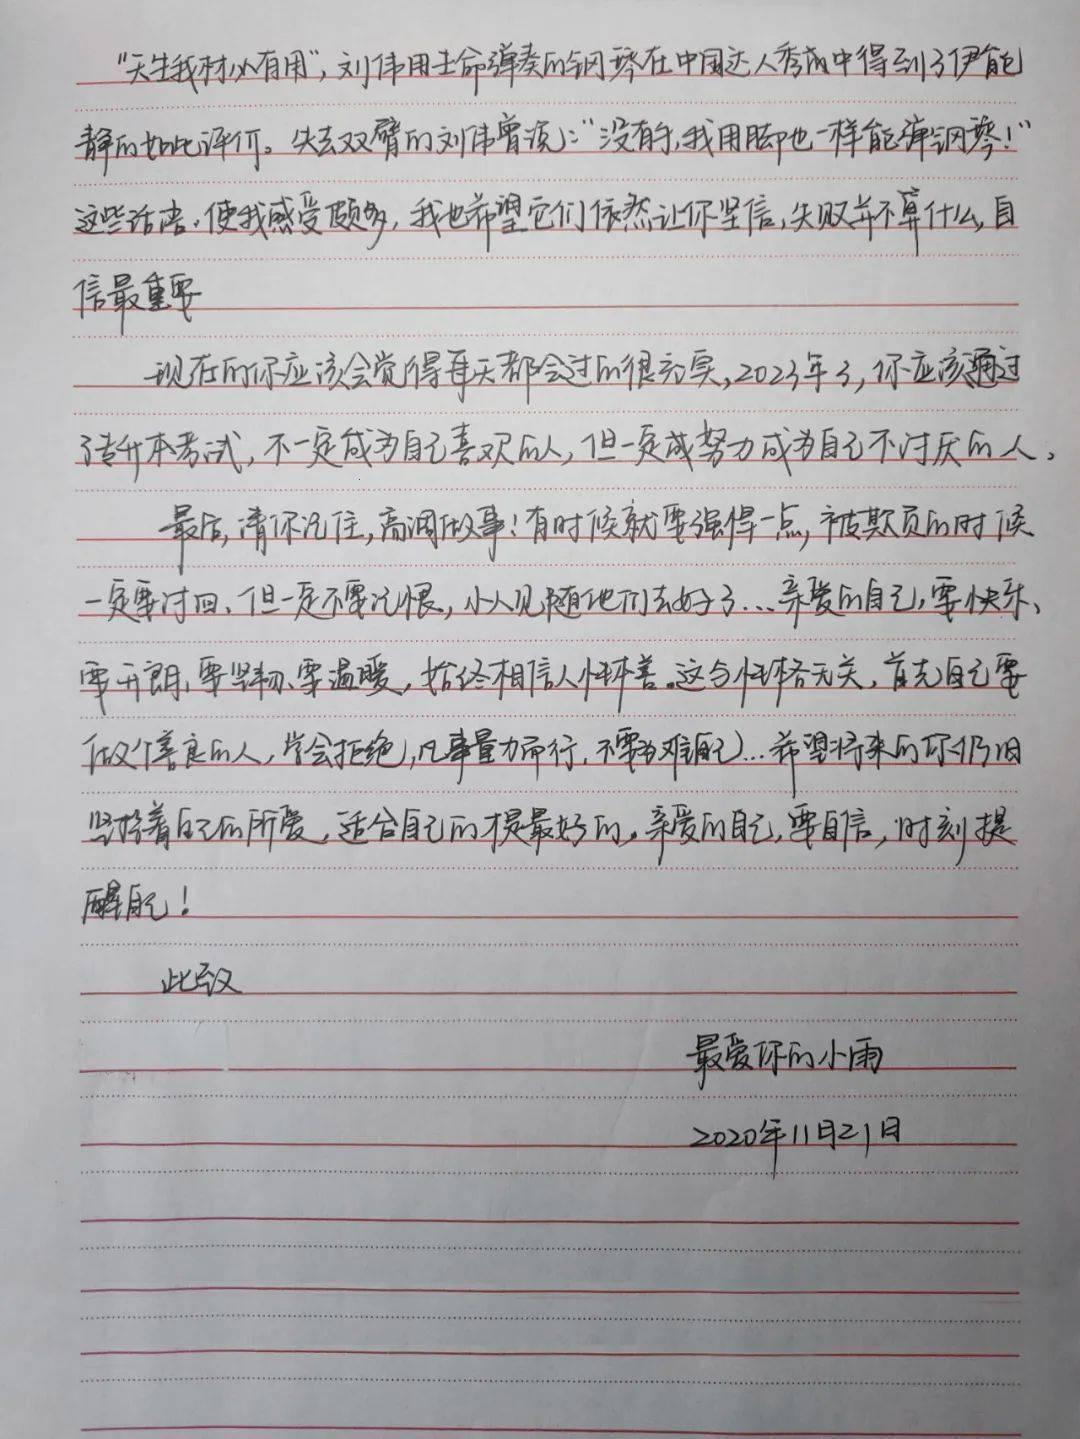 “天生我材必有用”，刘伟用生命弹奏的钢琴在中国达人秀成中得到了伊能
静的如此评价。失去双臂的刘伟曾说：“没有手，我用脚也一样能弹钢琴！”
这些话语，使我感受颇多，我也希望它们依然让你坚信，失败并不算什么，自
信最重要
现在的你应该会觉得每天都会过的很充实，2023年了，你应该通过
了专升本考试，不一定成为自己喜欢的人，但一定成努力成为自己不讨厌的人。
最后，请你记住，高调做事！有时候就要强悍一点，被欺负的时候
一定要讨回、但一定不要记恨，小人见随他们去好了...亲爱的自己，要快乐、
要开朗、要坚韧、要温暖，始终相信人性本善。这与性格无关，首先自己要
做个善良的人，学会拒绝，凡事量力而行，不要为难自己...希望将来的你仍旧
坚持着自己的所爱，适合自己的才是最好的。亲爱的自己，要自信，时刻提
醒自己！
此致
最爱你的小雨
2020年11月21日